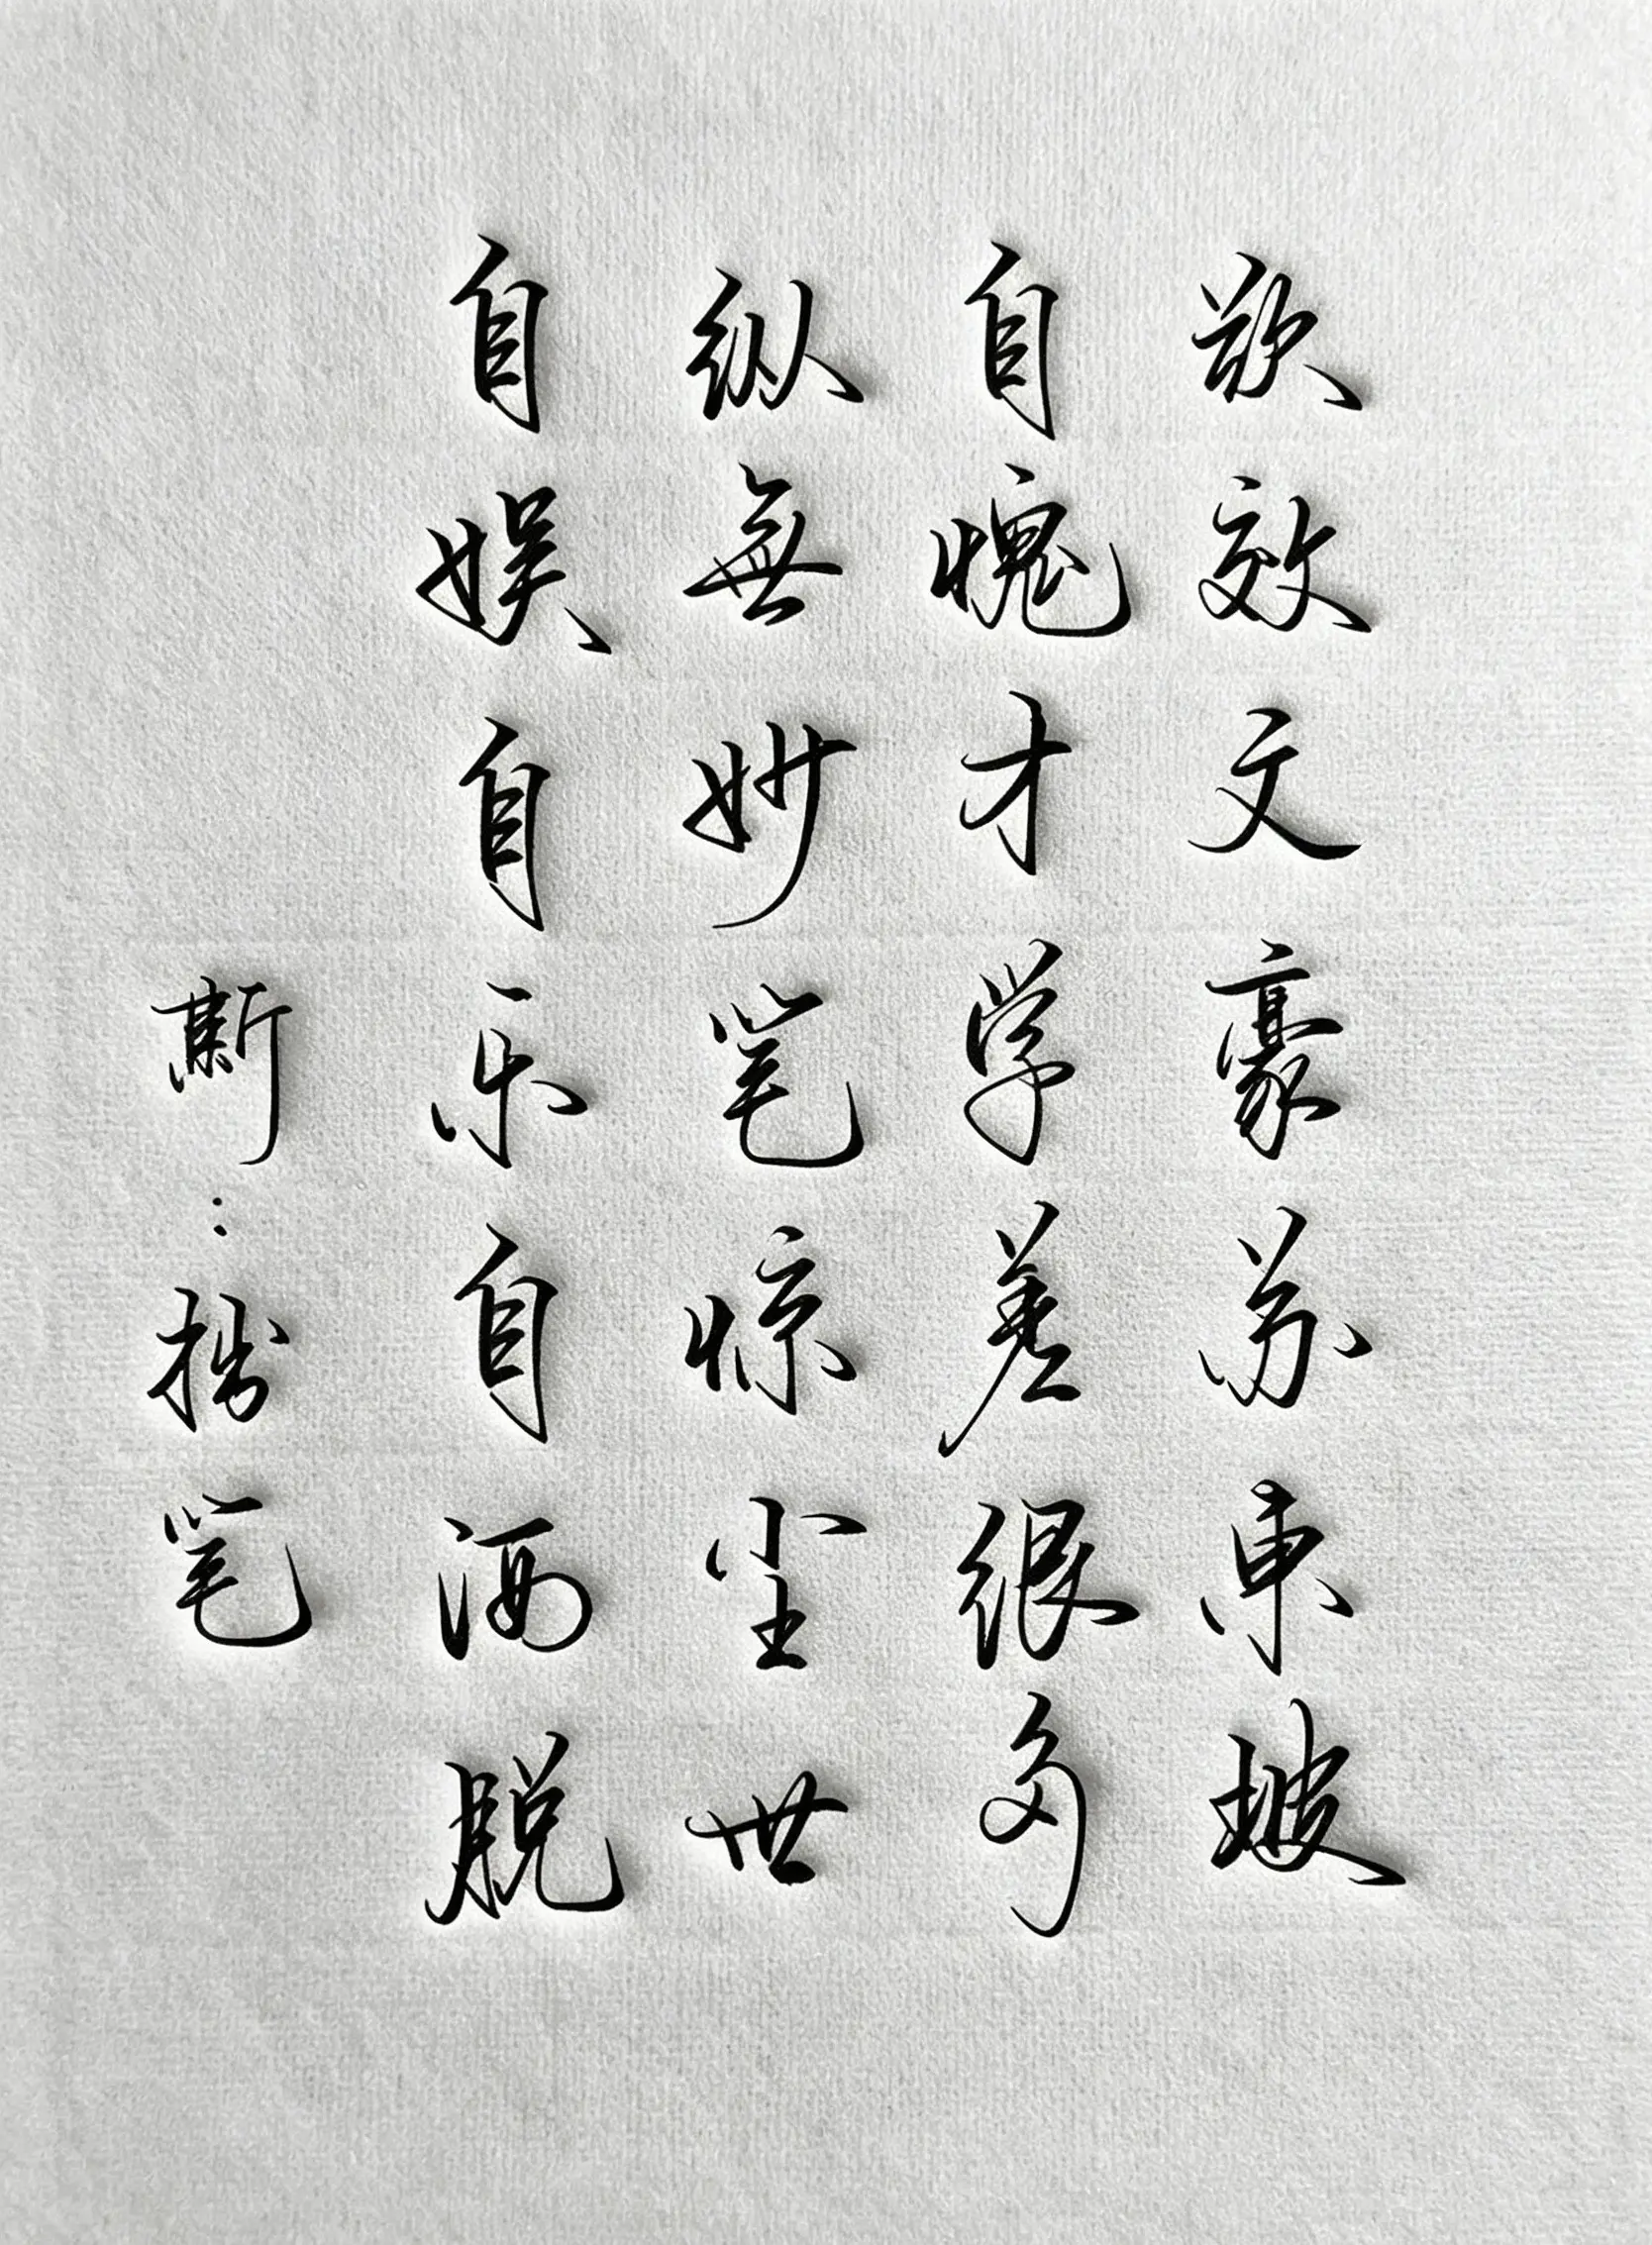 欲效文豪苏東坡
自愧才学差很多
纵無妙笔惊尘世
自娱自乐自洒脱
斯：拙笔